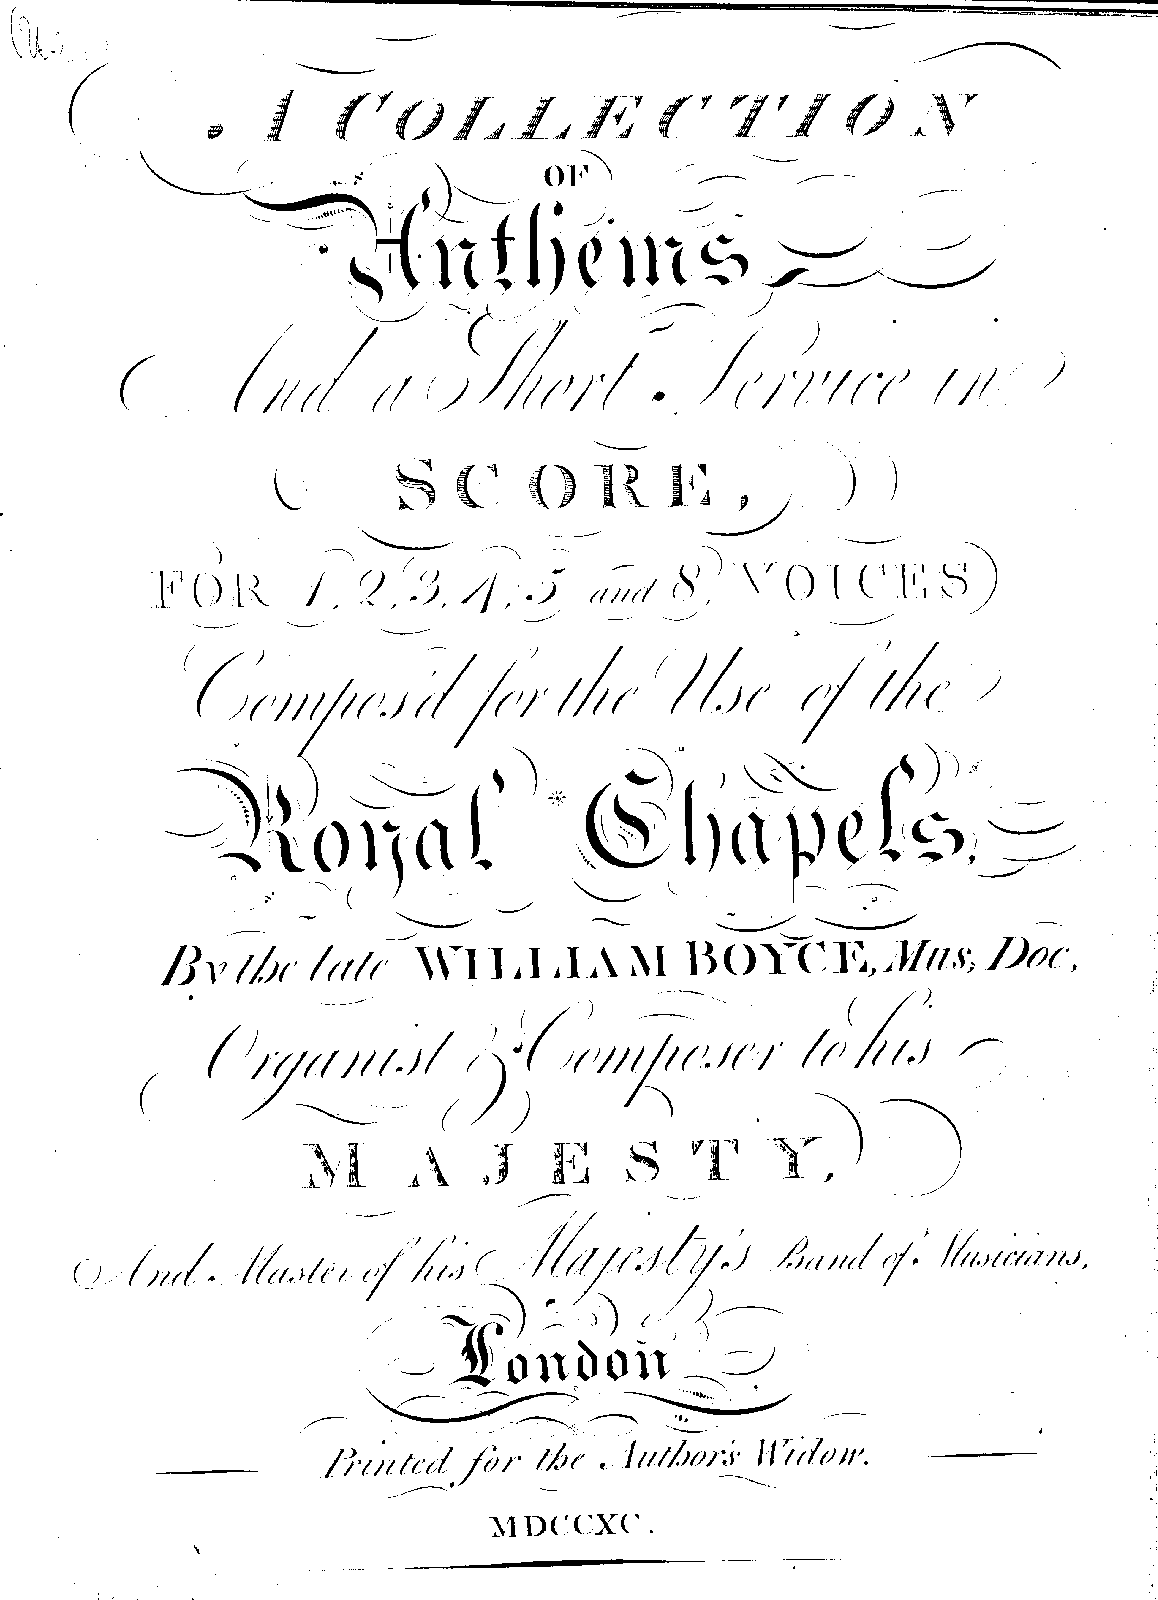 A COLLECTION
OF
Anthems
And a Short Service in
SCORE,
FOR 1, 2, 3, 4, 5 and 8, VOICES
Compos'd for the Use of the
Royal Chapels,
By the late WILLIAM BOYCE, Mus, Doc,
Organist & Composer to his
MAJESTY,
And Master of his Majesty's Band of Musicians,
London
Printed for the Author's Widow.
MDCCXC.